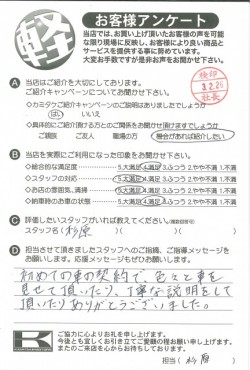 軽
お客様アンケート
当店では、お買い上げ頂いたお客様の声を可能
な限り現場に反映し、お客様により良い商品と
サービスを提供する事に努めています。
大変お手数ですが是非お声をお聞かせ下さい。
検印
2.26
社長
A 当店はご紹介を大切にしております。
ご紹介キャンペーンについてお聞かせ下さい。
・カミタケご紹介キャンペーンのご説明はありましたでしょうか
はい いいえ
・具体的にご紹介頂ける方とのご関係をお聞かせ頂けますでしょうか
ご親談 ご友人 職場の方 機会があれば紹介したい
B 当店を実際にご利用になった印象をお聞かせ下さい。
・総合的な満足度 5.大満足 4.満足 3.ふつう 2.やや不満 1.不満
・スタッフの対応 5.大満足 4.満足 3.ふつう 2.やや不満 1.不満
・お店の雰囲気、清掃 5.大満足 4.満足 3.ふつう 2.やや不満 1.不満
・納車時のお車の状態 5.大満足 4.満足 3.ふつう 2.やや不満 1.不満
C 評価したいスタッフがいれば教えてください。
スタッフ名( 杉原 )( )( )
D 担当させて頂きましたスタッフへのご指摘、ご指導メッセージを
お願いします。応援メッセージもぜひお願いします。
初めての車の契約で、色々と車を
見せて頂いたり、丁寧な説明をして
頂いたりありがとうございました。
ご協力に心よりお礼を申し上げます。
今後とも宜しくお引き立てご愛顧の程お願い申し上げます。
またのご来店を心からお待ちしております。
担当( 杉原 )